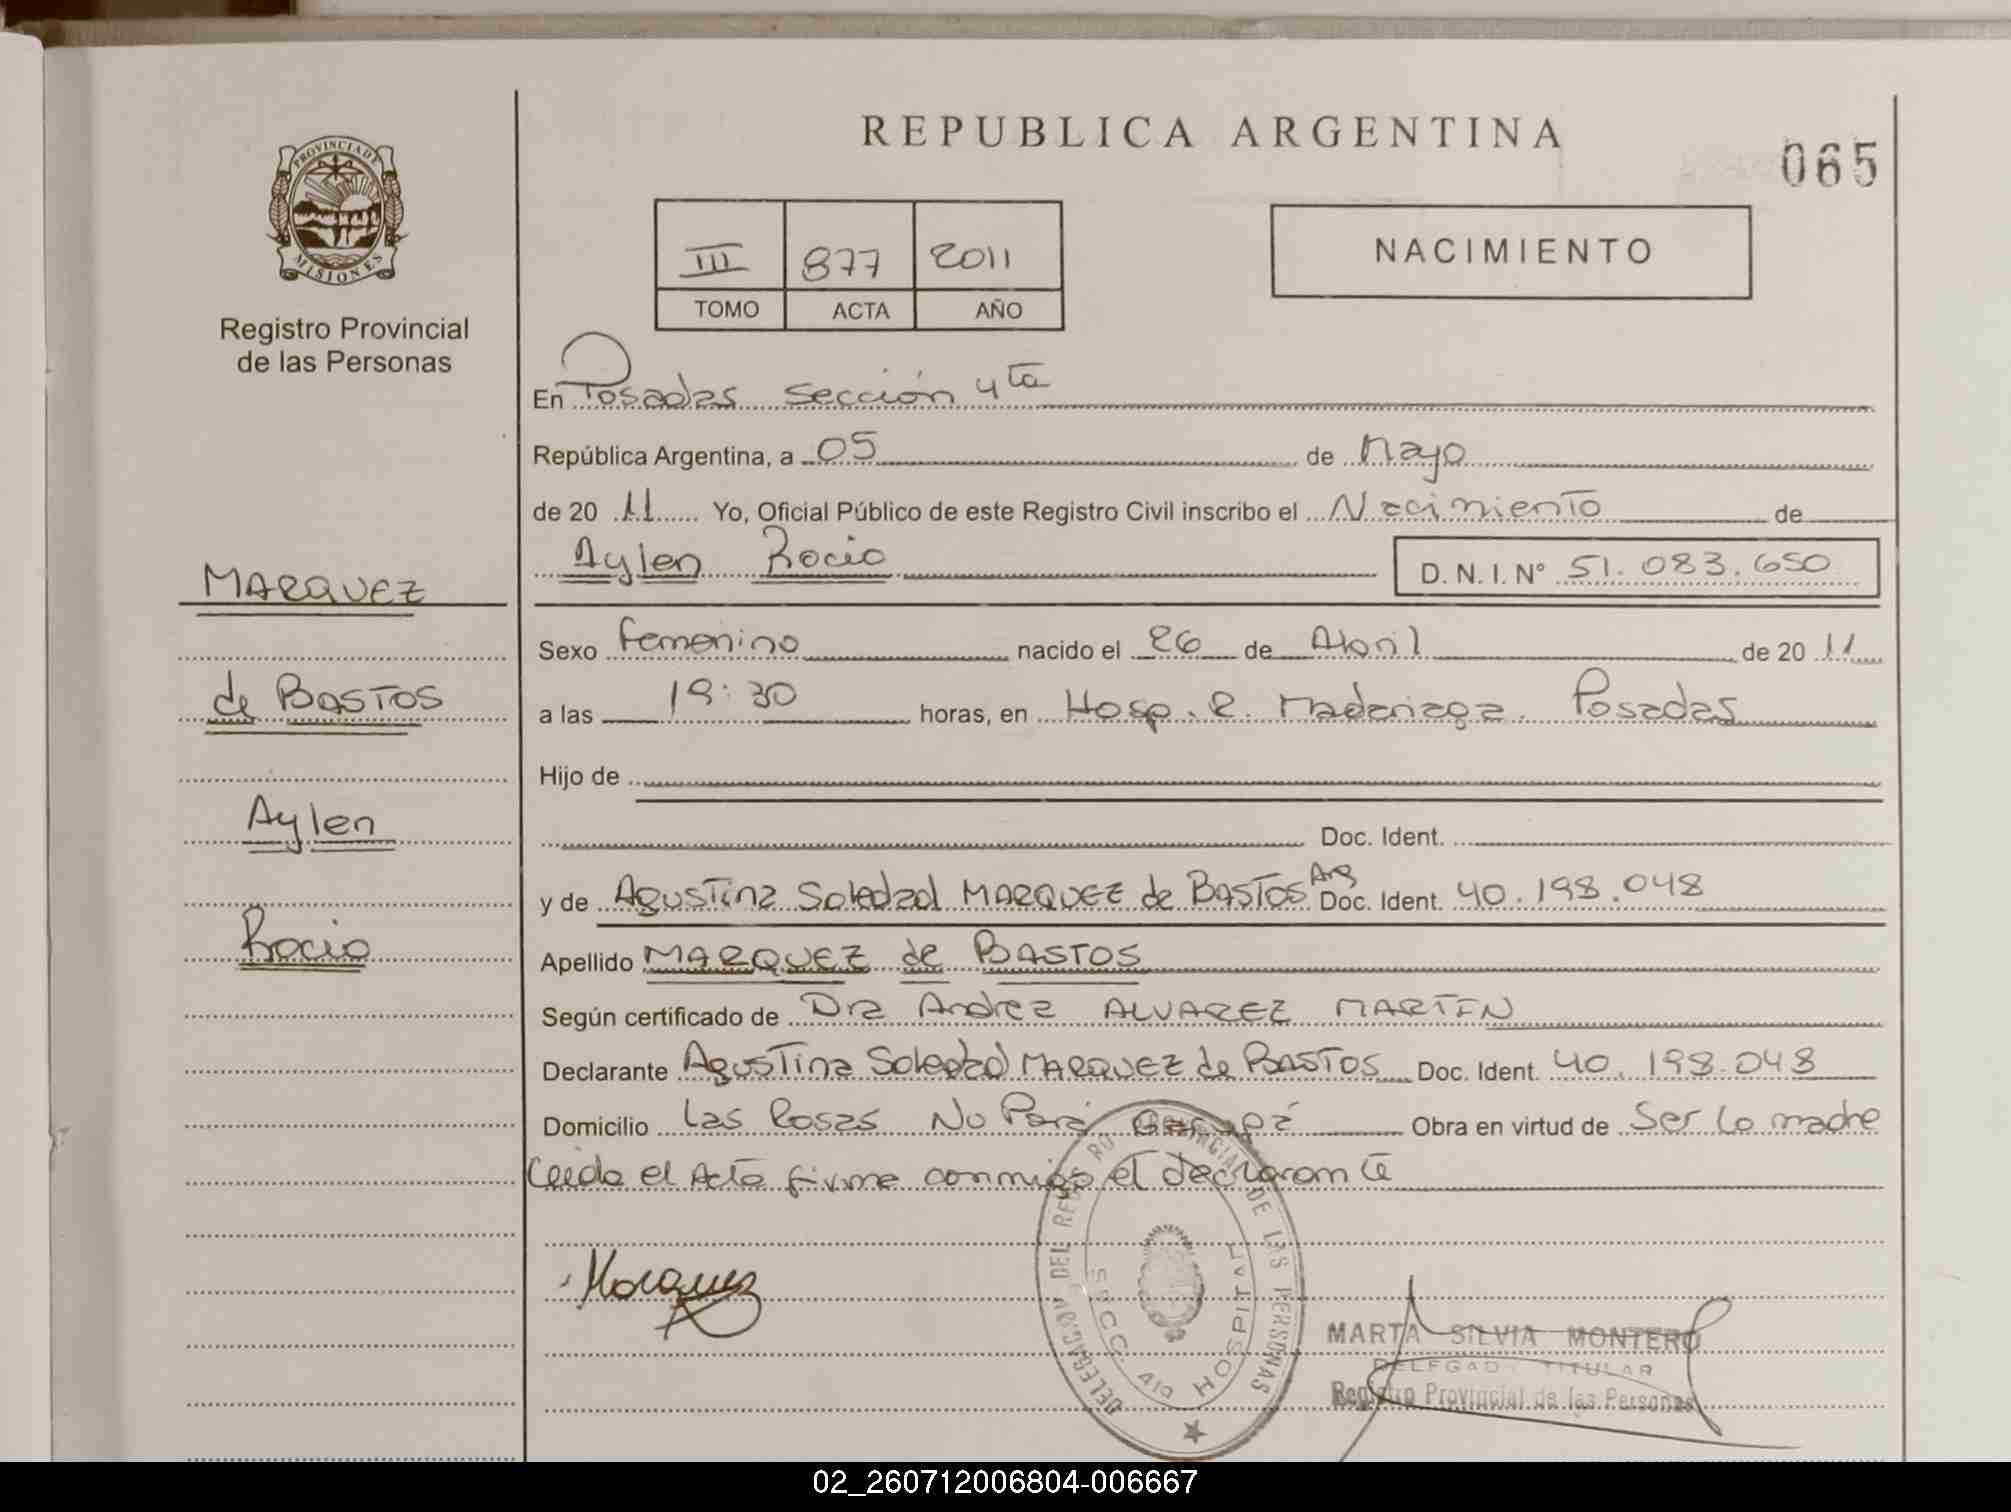 REPUBLICA ARGENTINA
065
PROVINCIA DE
MISIONES
Registro Provincial
de las Personas
III 877 2011
TOMO ACTA AÑO
NACIMIENTO
En Posadas sección 4ta
República Argentina, a 05 de Mayo
de 20 11 Yo, Oficial Público de este Registro Civil inscribo el Nacimiento de
Aylen Rocio D. N. I. N° 51.083.650
MARQUEZ
de BASTOS
Aylen
Rocio
Sexo Femenino nacido el 26 de Abril de 20 11
a las 19:30 horas, en Hosp. R. Madariaga. Posadas
Hijo de
Doc. Ident.
y de Agustina Soledad MARQUEZ de BASTOS Arg Doc. Ident. 40.198.048
Apellido MARQUEZ de BASTOS
Según certificado de Dra Andrea ALVAREZ MARTIN
Declarante Agustina Soledad MARQUEZ de BASTOS Doc. Ident. 40.198.048
Domicilio Las Rosas No Pará Garupá Obra en virtud de Ser la madre
Leida el Acta firma conmigo el declarante
Marquez
DELEGACION DEL REGISTRO PROVINCIAL DE LAS PERSONAS
SECC. 4ta HOSPITAL
MARTA SILVIA MONTERO
DELEGADA TITULAR
Registro Provincial de las Personas
02_260712006804-006667